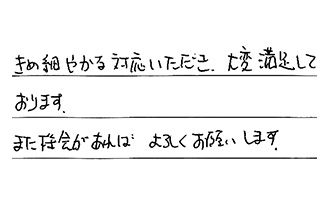 きめ細やかな対応いただき、大変満足して
おります。
また機会があれば よろしくお願いします。